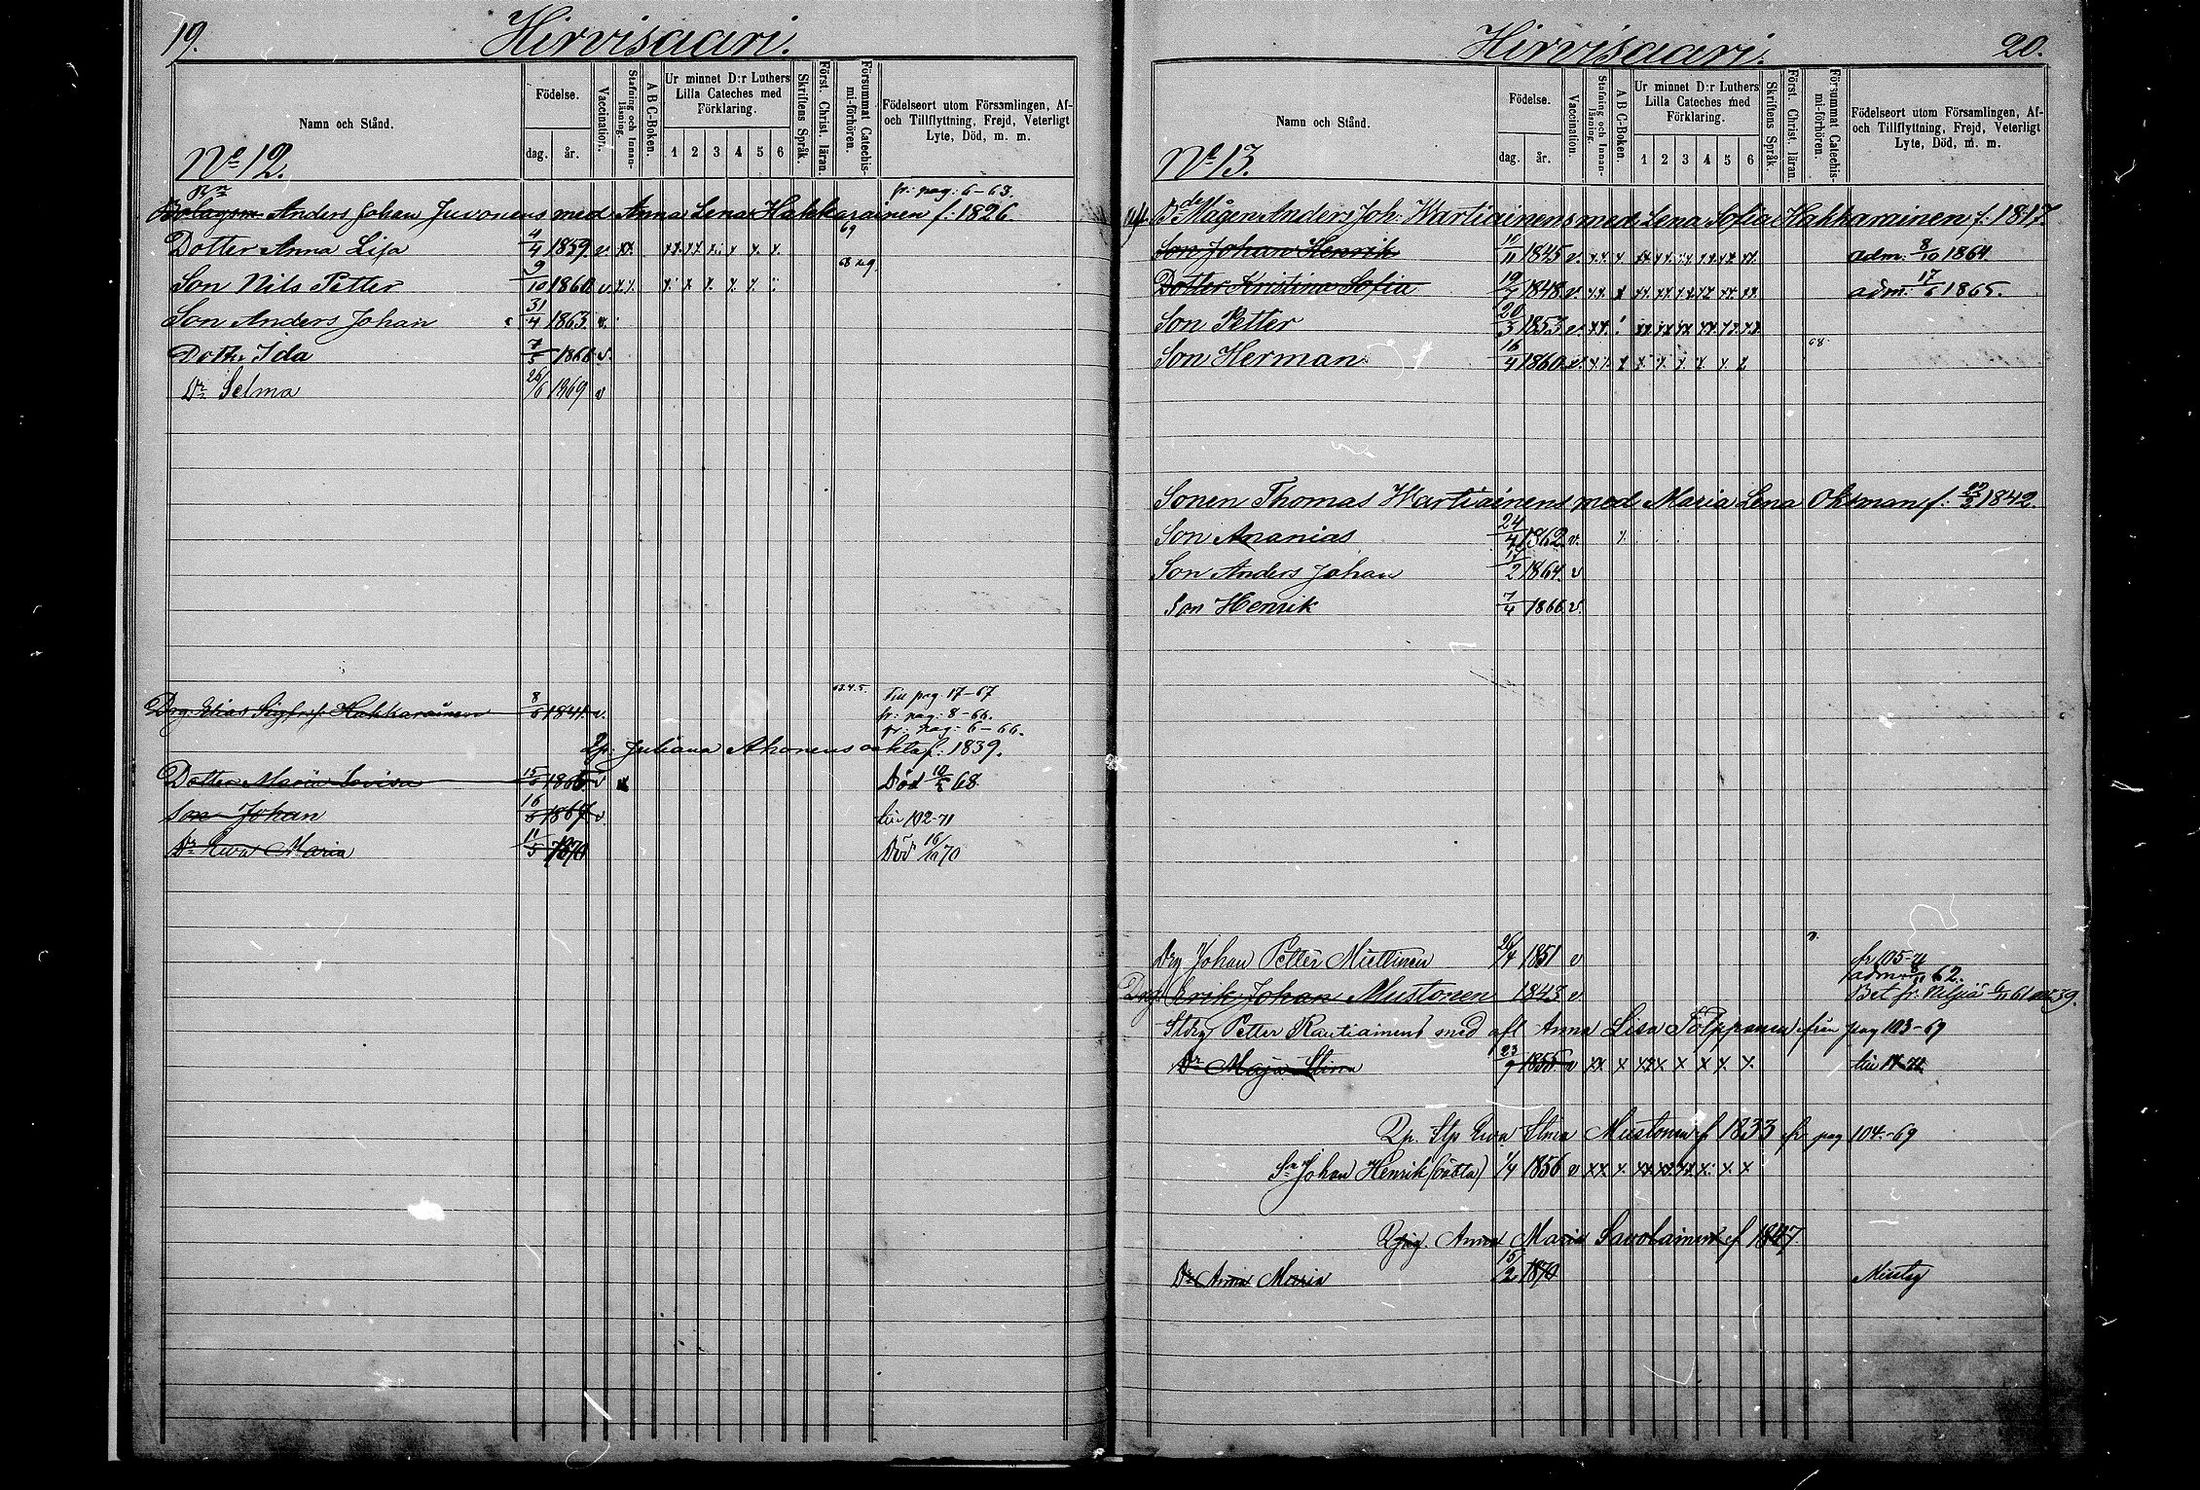 19.
Hirvisaari.
Namn och Stånd.
Födelse.
dag. år.
Vaccination.
Stafning och Innan-läsning.
A B C-Boken.
Ur minnet D:r Luthers Lilla Cateches med Förklaring.
1 2 3 4 5 6
Skriftens Språk.
Först. Christ. läran.
Försummat Catechis-mi-förhören.
Födelseort utom Församlingen, Af- och Tillflyttning, Frejd, Veterligt Lyte, Död, m. m.
No 12.
fr: pag: 6-63.
Bolagsm Anders Johan Juvonens med Anna Lena Hakkarainen f. 1826.
Dotter Anna Lisa 4/4 1859. v. xx. xx xx x x x x 69
Son Nils Petter 9/10 1860 v xx x x x x x 68
Son Anders Johan 31/4 1863. v.
Dotter Ida 7/5 1866 v.
Dr Selma 26/6 1869 v
63.4.5. till pag 17-67
Drg. Elias Sigfr. Hakkarainen 8/6 1841 v. fr: pag: 8-66.
fr: pag: 6-66.
Juliana Ahonens f. 1839.
Dotter Maria Lovisa 1865 v Död 68
Son Johan 16/6 1867 v. till 192-71
Dr Ewa Maria 11/5 1870 Död 16/10 70
Hirvisaari.
20.
Namn och Stånd.
Födelse.
dag. år.
Vaccination.
Stafning och Innan-läsning.
A B C-Boken.
Ur minnet D:r Luthers Lilla Cateches med Förklaring.
1 2 3 4 5 6
Skriftens Språk.
Först. Christ. läran.
Försummat Catechis-mi-förhören.
Födelseort utom Församlingen, Af- och Tillflyttning, Frejd, Veterligt Lyte, Död, m. m.
No 13.
Mågen Anders Joh. Wartiainens med Lena Sofia Hakkarainen f. 1817.
Son Johan Henrik 11/11 1845 v. xx x xx xx xx xx xx xx adm: 8/10 1864
Dotter Kristina Sofia 19/7 1848 v. xx x xx xx xx xx xx xx adm: 17/6 1865.
Son Petter 20/3 1853 v. xx. xx xx xx xx xx xx
Son Herman 16/4 1860 v. xx x x x x x x x 68
Sonen Thomas Wartiainens med Maria Lena Oksman f. 1842.
Son Ananias 24/4 1862 v. x
Son Anders Johan 17/2 1864 v
Son Henrik 7/4 1866 v.
Drg Johan Petter Miettinen 26/4 1851 v fr 105-71
adm 62.
Drg. Erik Johan Mustonen 1843 v Bet. fr. Nilsiä 61
Petter Rautiainens med afl Anna Lisa Tolppanen från pag 103-69
Dr Maja Stina 23/9 1855 v xx x xxx x x x x till
Ewa Stina Mustonen f 1833 fr pag 104-69
Sn Johan Henrik 1/4 1856 v xx x xx xx xx x x x
Anna Maria Savolainen f 1847
Dr Anna Maria 15/2 1870